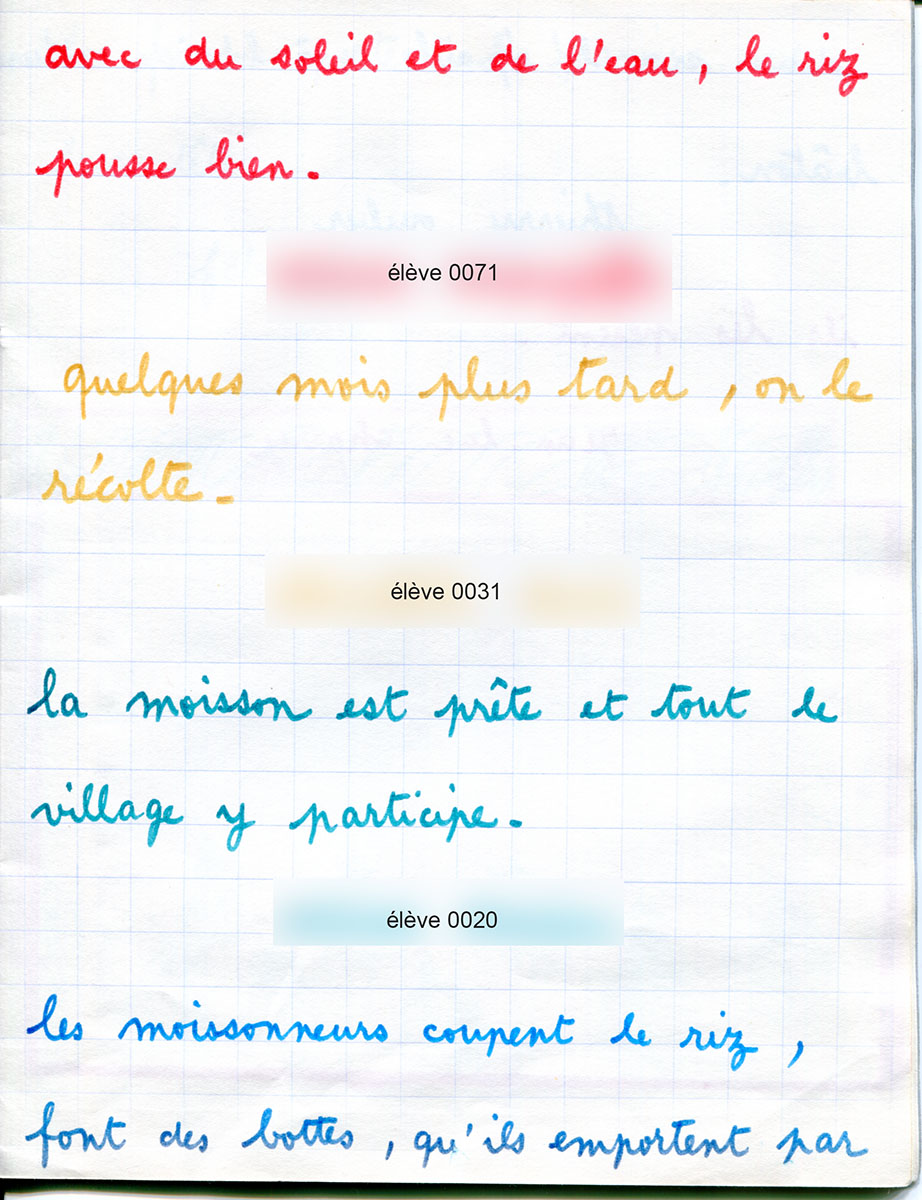 avec du soleil et de l'eau, le riz
pousse bien.
élève 0071
quelques mois plus tard, on le
récolte.
élève 0031
la moisson est prête et tout le
village y participe.
élève 0020
les moissonneurs coupent le riz,
font des bottes, qu'ils emportent par